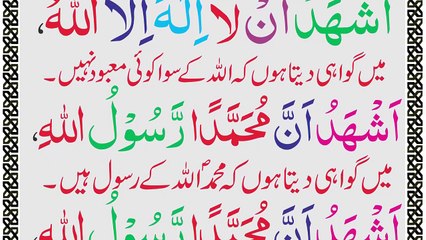 اَشْهَدُ اَنْ لَّا اِلٰهَ اِلَّا اللهُ،
میں گواہی دیتا ہوں کہ اللہ کے سوا کوئی معبود نہیں۔
اَشْهَدُ اَنَّ مُحَمَّدًا رَّسُوْلُ اللهِ،
میں گواہی دیتا ہوں کہ محمدؐ اللہ کے رسول ہیں۔
اَشْهَدُ اَنَّ مُحَمَّدًا رَّسُوْلُ اللهِ